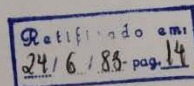 Retificado em:
24/6/83-pag.14